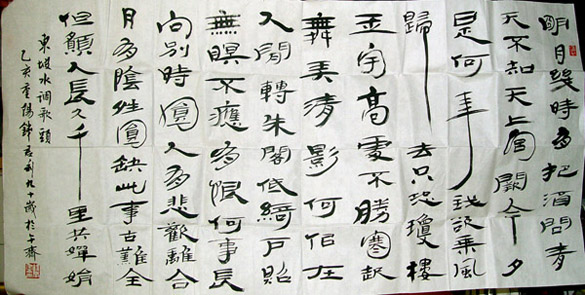 明月幾時有把酒問青
天不知天上宫闕今夕
是何年我欲乘風
歸去只恐瓊樓
玉宇高處不勝寒起
舞弄清影何佀在
人間轉朱閣低綺戶照
無眠不應有恨何事長
向別時圓人有悲歡離合
月有陰晴圓缺此事古難全
但願人長久千里共嬋娟
東坡水調歌頭
乙亥重陽九十歲於齋